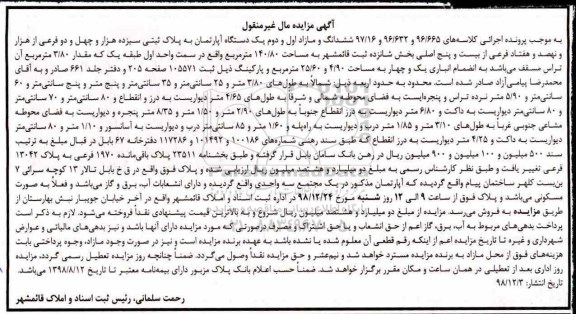 آگهی مزایده مال غیرمنقول
به موجب پرونده اجرائی کلاسه‌های ۹۶/۶۶۵ و ۹۶/۶۳۲ و ۹۷/۱۶ ششدانگ و مازاد اول و دوم یک دستگاه آپارتمان به پلاک ثبتی سیزده هزار و چهل و دو فرعی از هزار
و نهصد و هفتاد فرعی از بیست و پنج اصلی بخش شانزده ثبت قائمشهر به مساحت ۱۴۰/۸۰ مترمربع واقع در سمت واحد اول طبقه یک که مقدار ۳/۸۰ مترمربع آن
تراس مسقف می‌باشد به انضمام انباری یک و چهار به مساحت ۴/۹۰ و ۲۵/۶۰ مترمربع و پارکینگ ذیل ثبت ۱۰۵۵۷۱ صفحه ۲۰۵ و دفتر جلد ۶۶۱ صادر و به آقای
محمدرضا پیامی‌آزاد صادر شده است. محدود به حدود اربعه ذیل: شمالاً به طول‌های ۳/۸۰ متر و ۲۵ سانتی‌متر و ۳۵ سانتی‌متر و پنج متر و پنج سانتی‌متر و ۶۰
سانتی‌متر و ۵/۹۰ متر نرده تراس و پنجره‌ایست به فضای محوطه مشاعی و شرقاً به طول‌های ۴/۶۵ متر دیواریست به درز و انقطاع و ۸۰ سانتی‌متر و ۷۰ سانتی‌متر
و ۸۰ سانتی‌متر دیواریست به داکت و ۶/۸۰ متر دیواریست به درز انقطاع جنوباً به طول‌های ۲/۹۰ متر و ۱/۵۰ متر و ۸/۳۵ متر پنجره و دیواریست به فضای محوطه
مشاعی جنوبی غرباً به طول‌های ۳/۱۰ متر و ۱/۸۵ متر درب و دیواریست به راه‌پله و ۱/۶۰ متر و ۸۵ سانتی‌متر درب و دیواریست به آسانسور و ۱/۱۰ متر و ۸۰ سانتی‌متر
دیواریست به داکت و ۴/۲۵ متر دیواریست به درز انقطاع که طبق سند رهنی شماره‌های ۱۰۰۱۸۶ و ۱۰۴۴۹۲ و ۱۱۷۲۸۶ دفترخانه ۶۷ بابل در قبال مبلغ به ترتیب
سند ۵۰۰ میلیون و ۱۰۰ میلیون و ۹۰۰ میلیون ریال در رهن بانک سامان بابل قرار گرفته و طبق بخشنامه ۲۳۵۱۱ پلاک باقی‌مانده ۱۹۷۰ فرعی به پلاک ۱۳۰۴۲
فرعی تغییر یافت و طبق نظر کارشناس رسمی به مبلغ دو میلیارد و هفتصد میلیون ریال ارزیابی شده و پلاک فوق واقع در ق خ بابل تالار ۱۳ کوچه سرائی ۷
بن‌بست کلهر ساختمان پیام واقع گردیده که آپارتمان مذکور در یک مجتمع سه واحدی واقع گردیده و دارای انشعابات آب، برق و گاز می‌باشد و فعلاً به صورت
مسکونی می‌باشد و پلاک فوق از ساعت ۹ الی ۱۲ روز شنبه مورخ ۹۸/۱۲/۲۴ در اداره ثبت اسناد و املاک قائمشهر واقع در آخر خیابان جویبار نبش بهارستان از
طریق مزایده به فروش می‌رسد. مزایده از مبلغ دو میلیارد و هفتصد میلیون ریال شروع و به بالاترین قیمت پیشنهادی نقداً فروخته می‌شود. لازم به ذکر است
پرداخت بدهی‌های مربوط به آب، برق، گاز اعم از حق انشعاب و یا حق اشتراک و مصرف درصورتی که مورد مزایده دارای آنها باشد و نیز بدهی‌های مالیاتی و عوارض
شهرداری و غیره تا تاریخ مزایده اعم از اینکه رقم قطعی آن معلوم شده یا نشده باشد به عهده برنده مزایده است و نیز در صورت وجود مازاد، وجوه پرداختی بابت
هزینه‌های فوق از محل مازاد به برنده مزایده مسترد خواهد شد و نیم‌عشر و حق مزایده نقداً وصول می‌گردد. ضمناً چنانچه روز مزایده تعطیل رسمی گردد، مزایده
روز اداری بعد از تعطیلی در همان ساعت و مکان مقرر برگزار خواهد شد. ضمناً حسب اعلام بانک پلاک مزبور دارای بیمه‌نامه معتبر تا تاریخ ۱۳۹۸/۸/۱۲ می‌باشد.
تاریخ انتشار: ۹۸/۱۲/۳
رحمت سلمانی، رئیس ثبت اسناد و املاک قائمشهر